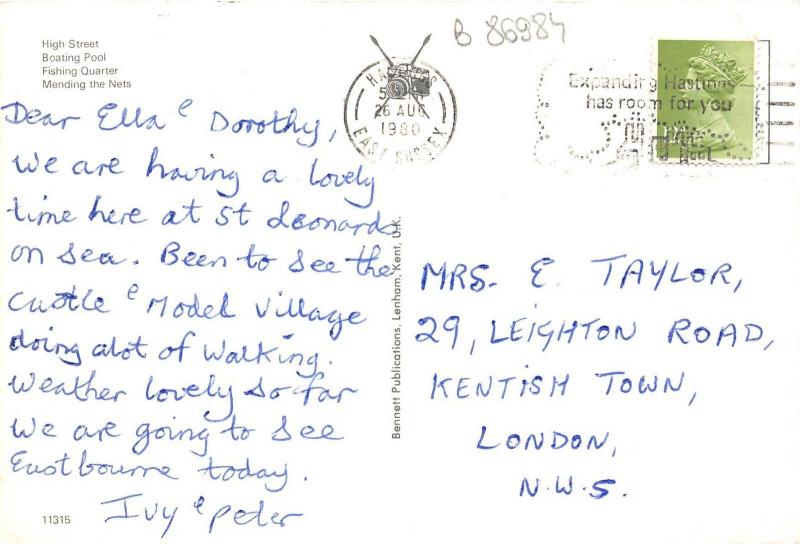 High Street
Boating Pool
Fishing Quarter
Mending the Nets
B 86984
HASTINGS
26 AUG
1980
EAST SUSSEX
Expanding Hastings
has room for you
Dear Ella e Dorothy,
We are having a lovely
time here at St Leonards
on Sea. Been to see the
Castle e Model Village
doing alot of Walking.
Weather lovely so far
We are going to see
Eastbourne today.
Ivy e Peter
11315
Bennett Publications, Lenham, Kent, U.K.
MRS. E. TAYLOR,
29, LEIGHTON ROAD,
KENTISH TOWN,
LONDON,
N.W.5.